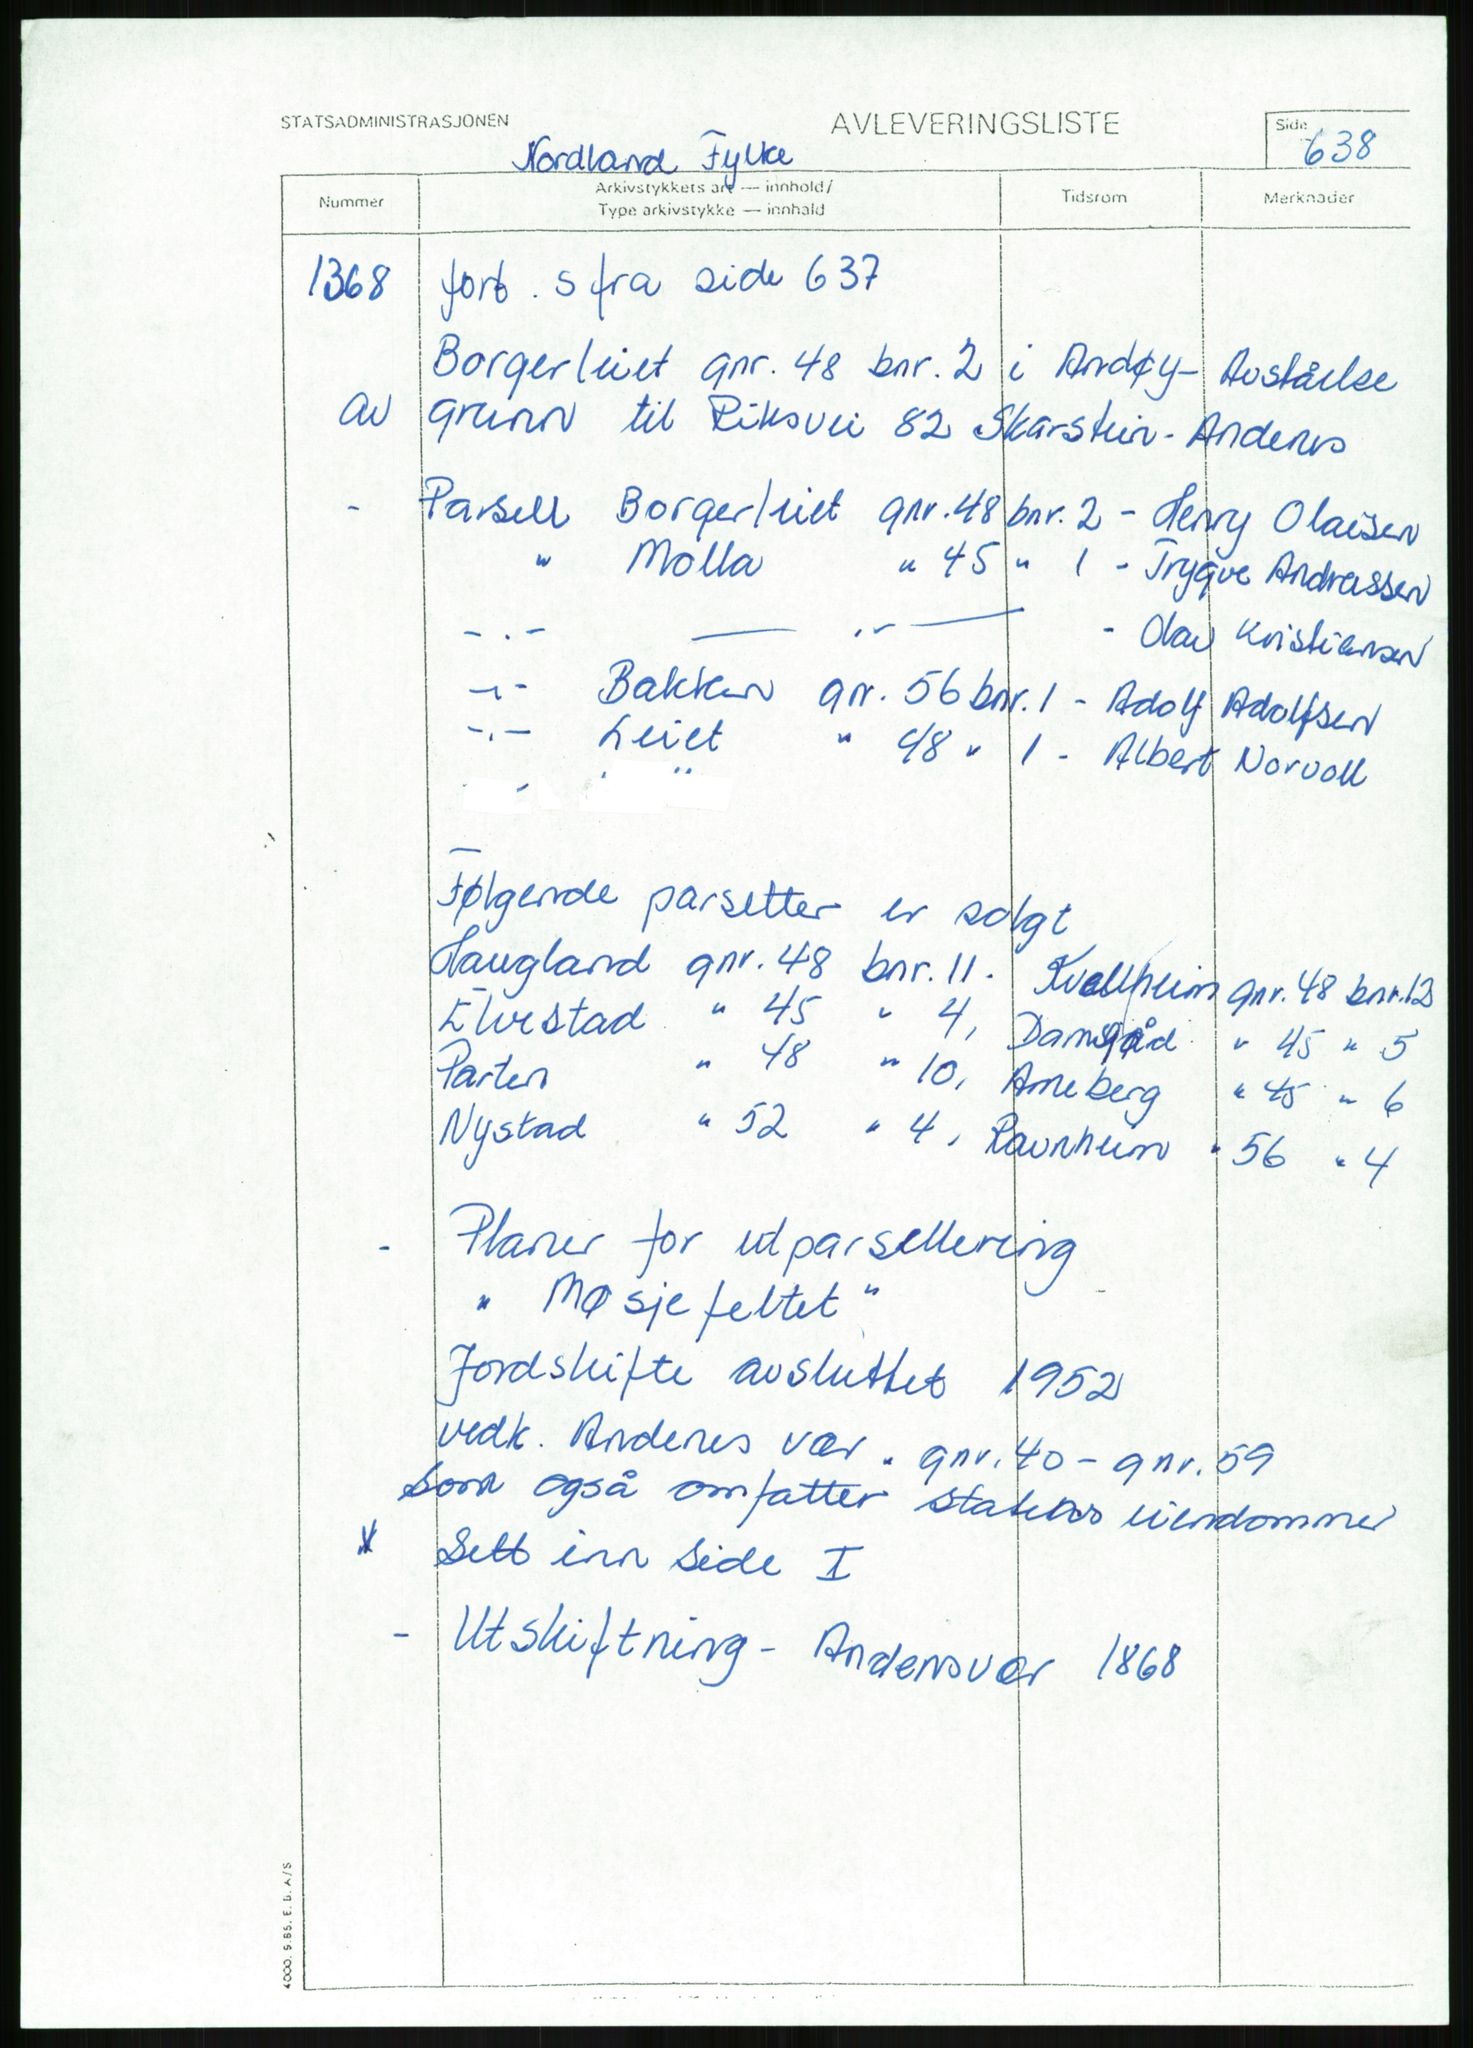 STATSADMINISTRASJONEN
AVLEVERINGSLISTE
Side
638
Nordland Fylke
Nummer
Arkivstykkets art — innhold/
Type arkivstykke — innhald
Tidsrom
Merknader
1368 forts. fra side 637
Borgerleiet gnr. 48 bnr. 2 i Andøy - Avståelse
av grunn til Riksvei 82 Skarstein - Andenes
- Parsell Borgerleiet gnr. 48 bnr. 2 - Henry Olaisen
" Molla " 45 " 1 - Trygve Andreassen
-.- — .- — - Olav Kristiansen
-.- Bakken gnr. 56 bnr. 1 - Adolf Adolfsen
-.- Leiet " 48 " 1 - Albert Norvoll
-
Følgende parseller er solgt
Haugland gnr. 48 bnr. 11. Kvellheim gnr. 48 bnr. 12
Elvestad " 45 " 4, Damsgård " 45 " 5
Parten " 48 " 10, Arneberg " 45 " 6
Nystad " 52 " 4, Ravnheim " 56 " 4
- Planer for utparsellering
" Møsjefeltet "
Jordskifte avsluttet 1952
vedk. Andenes vær. gnr. 40 - gnr. 59
som også omfatter statens eiendommer
* Sett inn side I
- Utskiftning - Andenesvær 1868
4000. 9.85. E. D. A/S